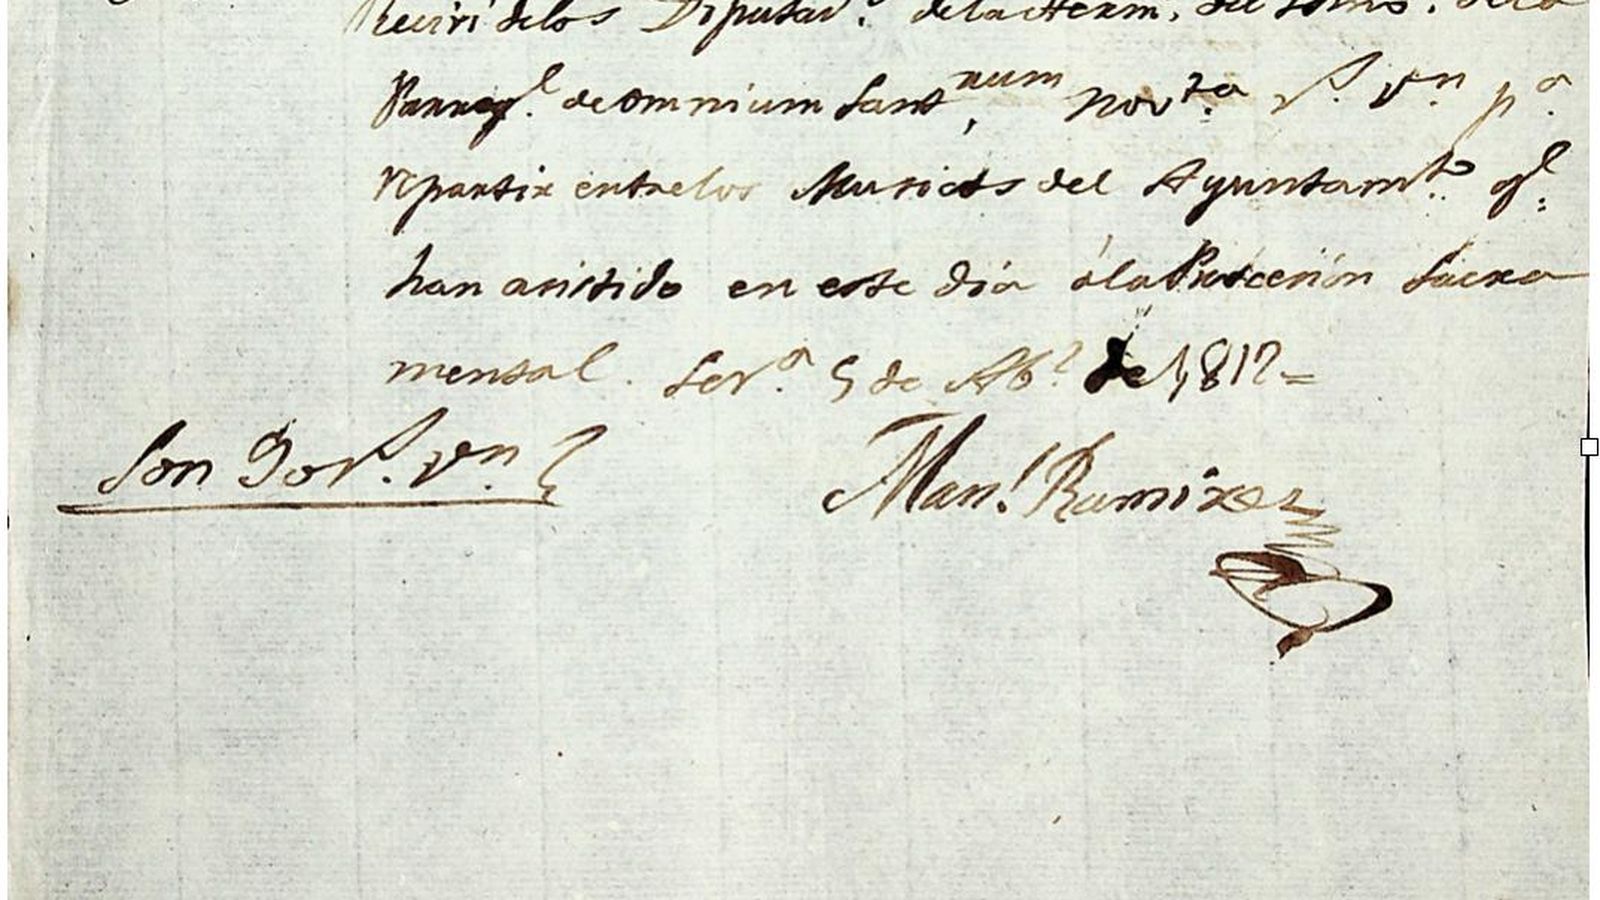 Reciví delos Diputad.s dela Herm. del SSmo. dela
Parroql. de Omnium Sanctnum, Nov.ta r.s v.n p.a
repartir entrelos Musicos del Ayuntam.to q.e
han asistido en este dia álaProcesion Sacra
mental. Sev.a 5 de Ab.l de 1,817=
Son 90 r.s v.n
Man.l Ramirez